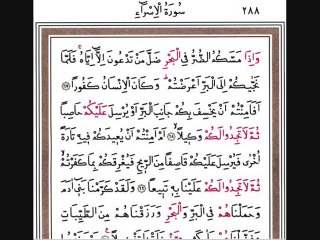 ٢٨٨ سُورَةُ الْإِسْرَاءِ
وَإِذَا مَسَّكُمُ الضُّرُّ فِي الْبَحْرِ ضَلَّ مَنْ تَدْعُونَ إِلَّا إِيَّاهُ فَلَمَّا
نَجّٰيكُمْ إِلَى الْبَرِّ أَعْرَضْتُمْ وَكَانَ الْإِنْسَانُ كَفُورًا ﴿٦٧﴾
أَفَأَمِنْتُمْ أَنْ يَخْسِفَ بِكُمْ جَانِبَ الْبَرِّ أَوْ يُرْسِلَ عَلَيْكُمْ حَاصِبًا
ثُمَّ لَا تَجِدُوا لَكُمْ وَكِيلًا ﴿٦٨﴾ أَمْ أَمِنْتُمْ أَنْ يُعِيدَكُمْ فِيهِ تَارَةً
أُخْرٰى فَيُرْسِلَ عَلَيْكُمْ قَاصِفًا مِنَ الرِّيحِ فَيُغْرِقَكُمْ بِمَا كَفَرْتُمْ
ثُمَّ لَا تَجِدُوا لَكُمْ عَلَيْنَا بِهِ تَبِيعًا ﴿٦٩﴾ وَلَقَدْ كَرَّمْنَا بَنِي آدَمَ
وَحَمَلْنَاهُمْ فِي الْبَرِّ وَالْبَحْرِ وَرَزَقْنَاهُمْ مِنَ الطَّيِّبَاتِ